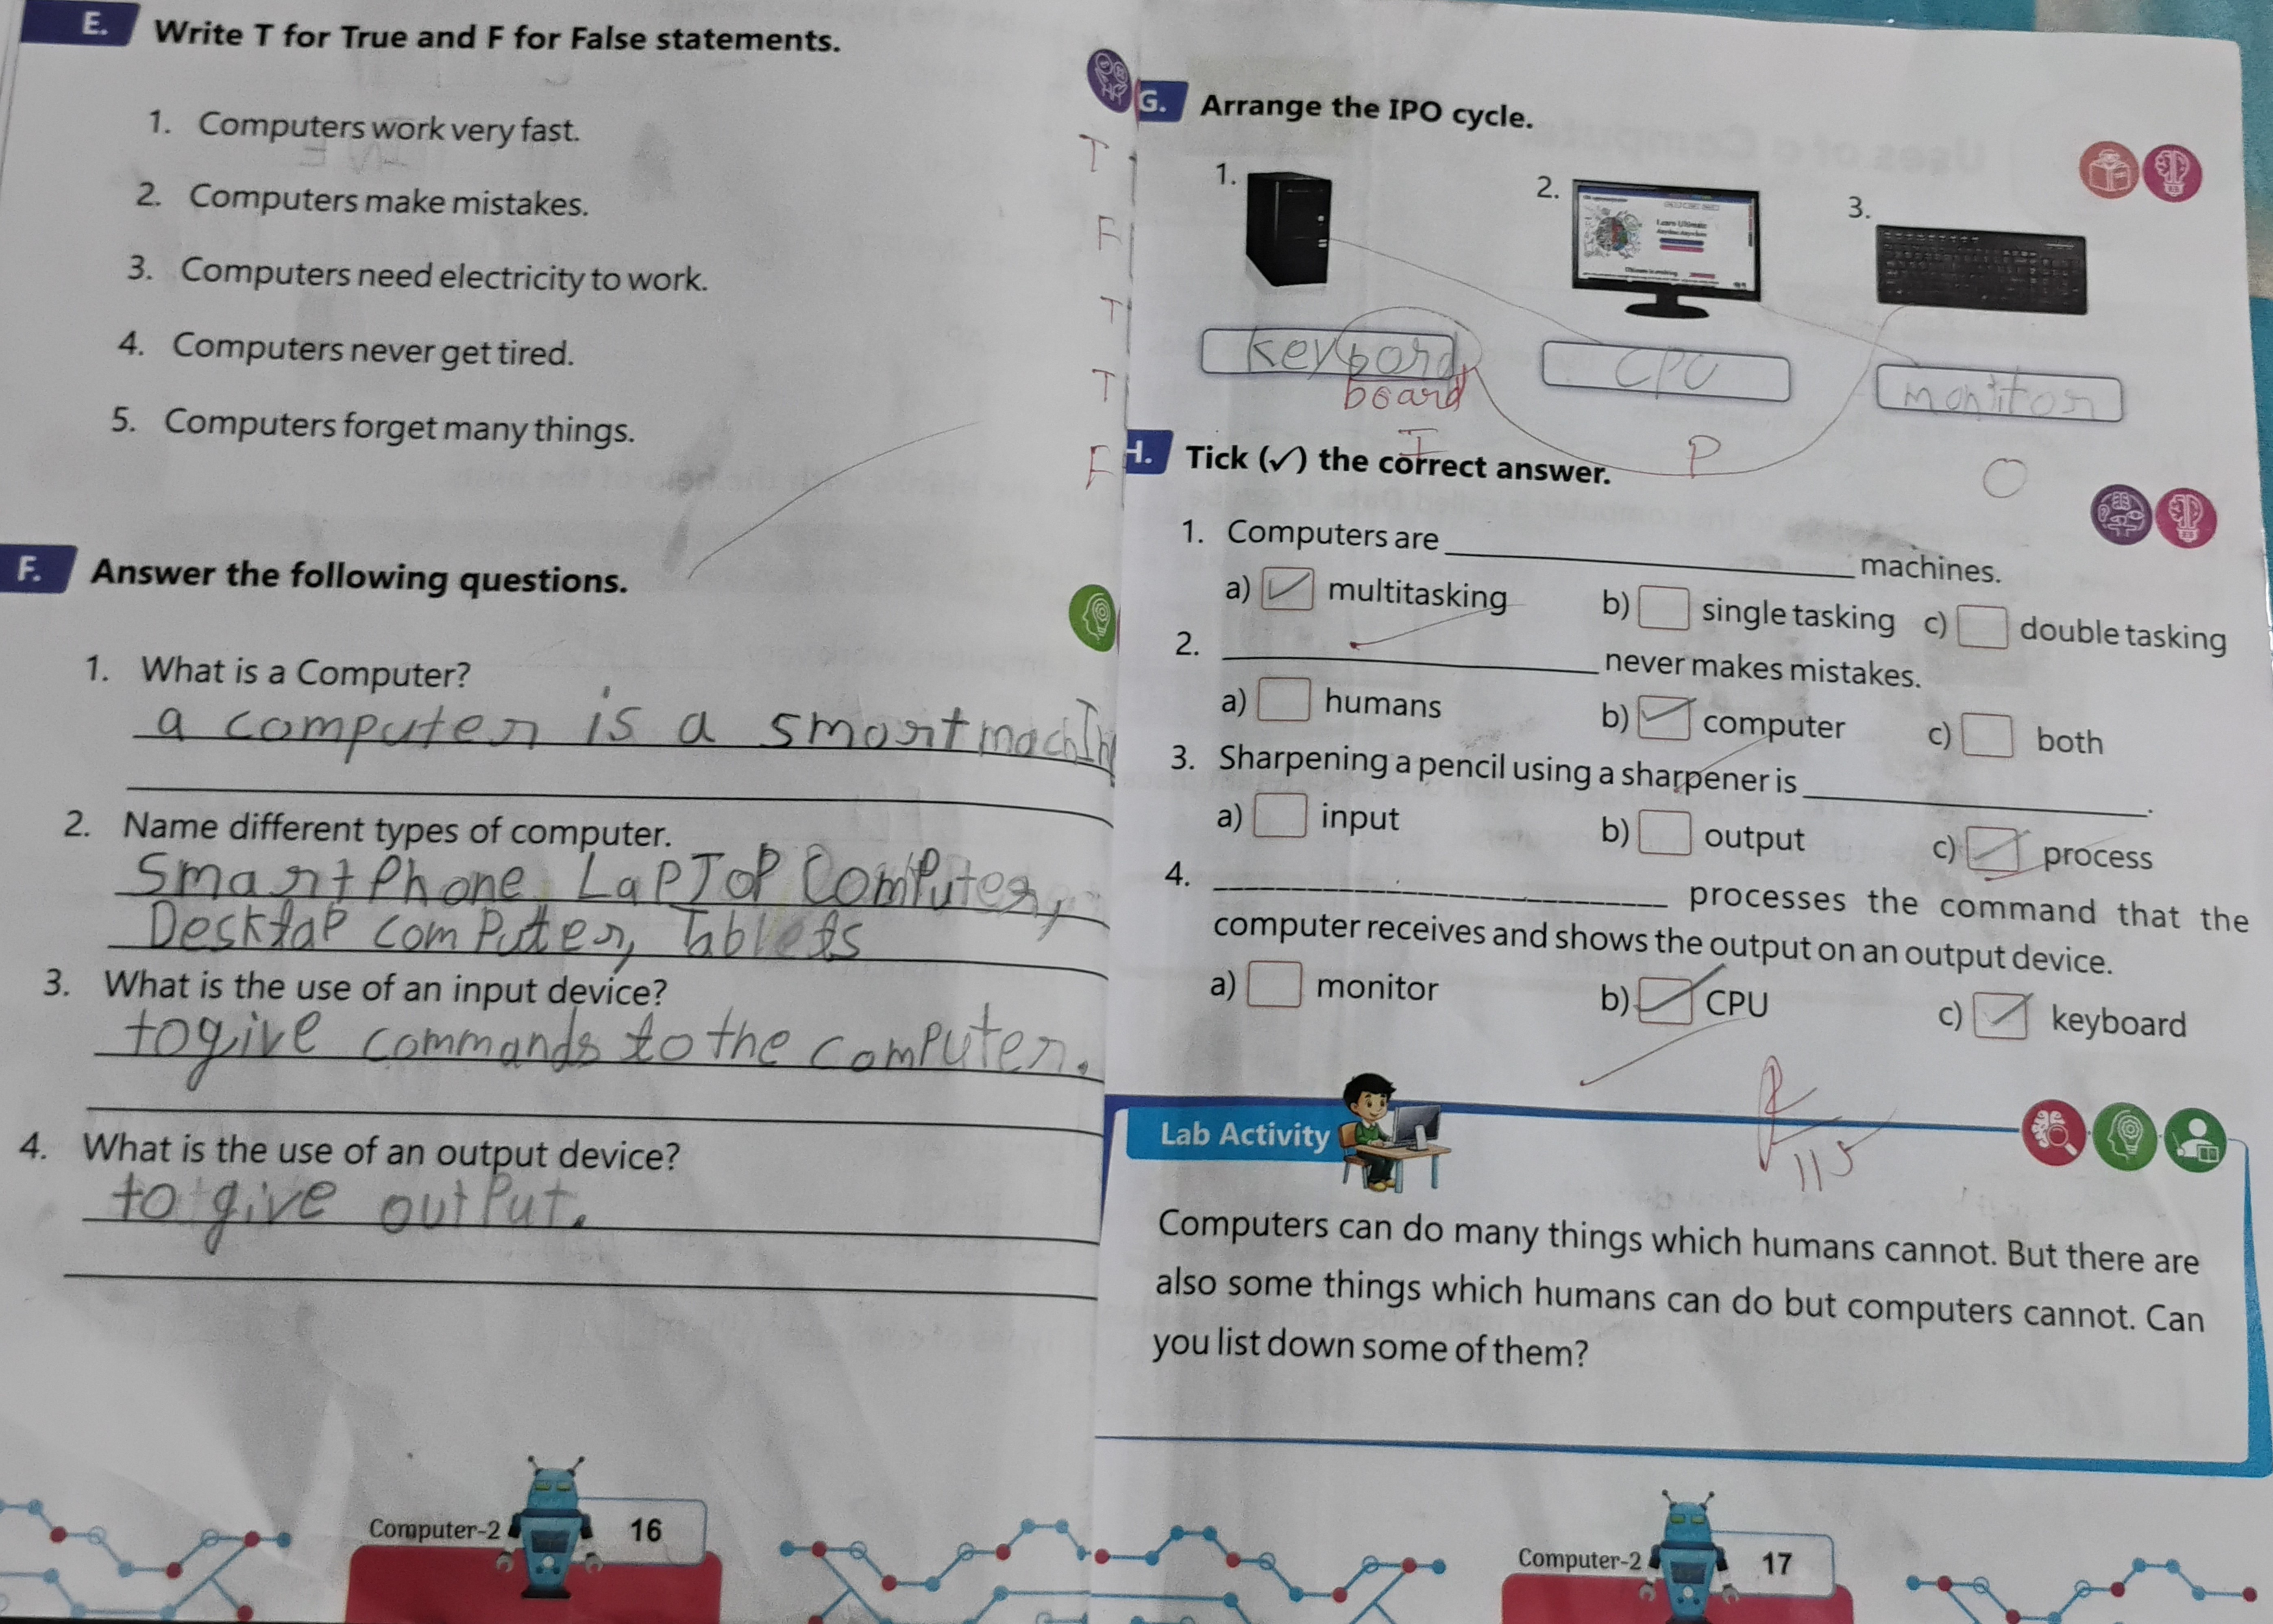 E. Write T for True and F for False statements.
1. Computers work very fast. T
2. Computers make mistakes. F
3. Computers need electricity to work. T
4. Computers never get tired. T
5. Computers forget many things. F
F. Answer the following questions.
1. What is a Computer?
a computer is a smart machin
2. Name different types of computer.
Smart Phone, LaPToP Computer,
Desktap comPuter, Tablets
3. What is the use of an input device?
to give commands to the computer.
4. What is the use of an output device?
to give outPut.
Computer-2 16
G. Arrange the IPO cycle.
1. 2. 3.
keybord CPU monitor
board
I P O
H. Tick (✓) the correct answer.
1. Computers are ____________ machines.
a) ✓ multitasking b) single tasking c) double tasking
2. ____________ never makes mistakes.
a) humans b) ✓ computer c) both
3. Sharpening a pencil using a sharpener is ____________.
a) input b) output c) ✓ process
4. ____________ processes the command that the
computer receives and shows the output on an output device.
a) monitor b) ✓ CPU c) ✓ keyboard
Lab Activity
Computers can do many things which humans cannot. But there are
also some things which humans can do but computers cannot. Can
you list down some of them?
Computer-2 17